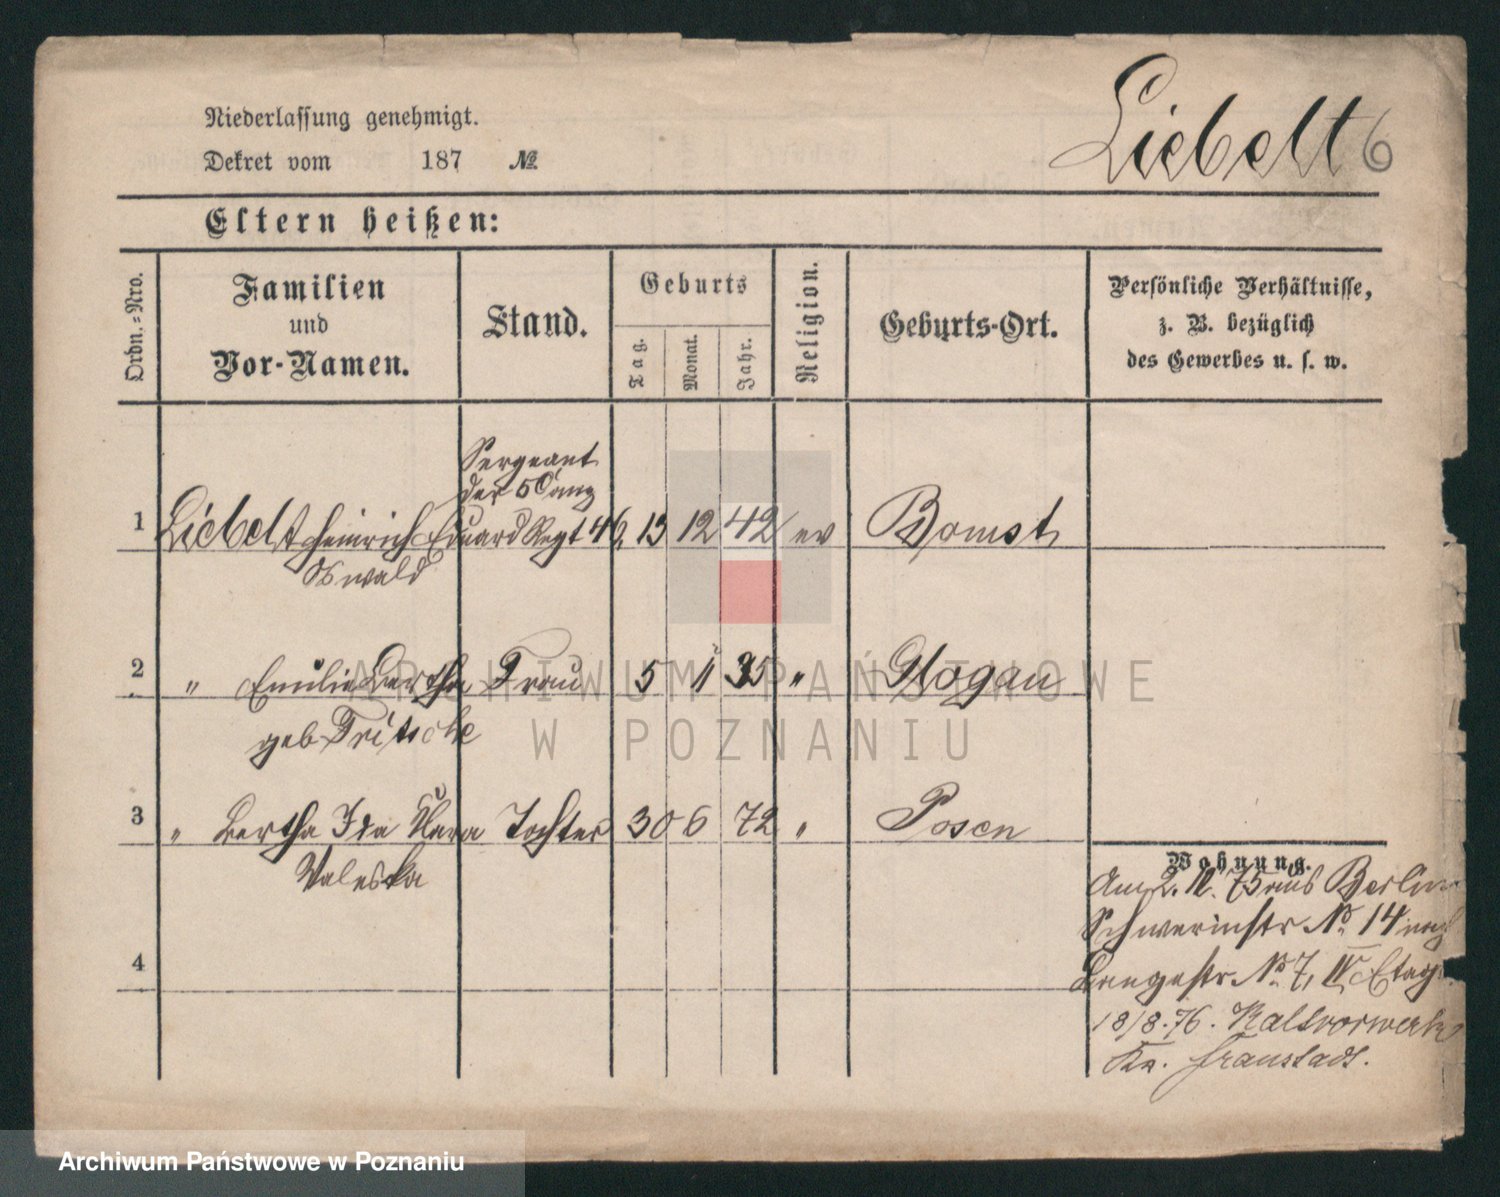 Niederlassung genehmigt.
Dekret vom 187 №
Liebelt 6
Eltern heißen:
Ordn.-Nro.
Familien und Vor-Namen.
Stand.
Geburts
Tag.
Monat.
Jahr.
Religion.
Geburts-Ort.
Persönliche Verhältnisse,
z. B. bezüglich
des Gewerbes u. s. w.
Sergeant
der 5 Comp
1 Liebelt Heinrich Eduard Regt 46 13 12 42 ev Bomst
Oswald
2 " Emilie Bertha Frau 5 11 35 " Glogau
geb Fritsche
3 " Bertha Ida Klara Tochter 30 6 72 " Posen
Valeska
4
Wohnung.
Am 2. 12. 75 aus Berlin
Schwerinstr No. 14 nach
Langestr. No. 7, IV Etage
18/8.76.
Kr. Fraustadt.
ARCHIWUM PAŃSTWOWE
W POZNANIU
Archiwum Państwowe w Poznaniu